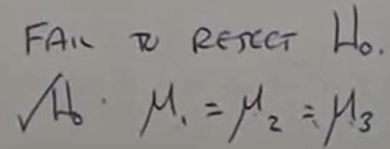 FAIL TO REJECT H₀.
✓H₀: μ₁ = μ₂ = μ₃